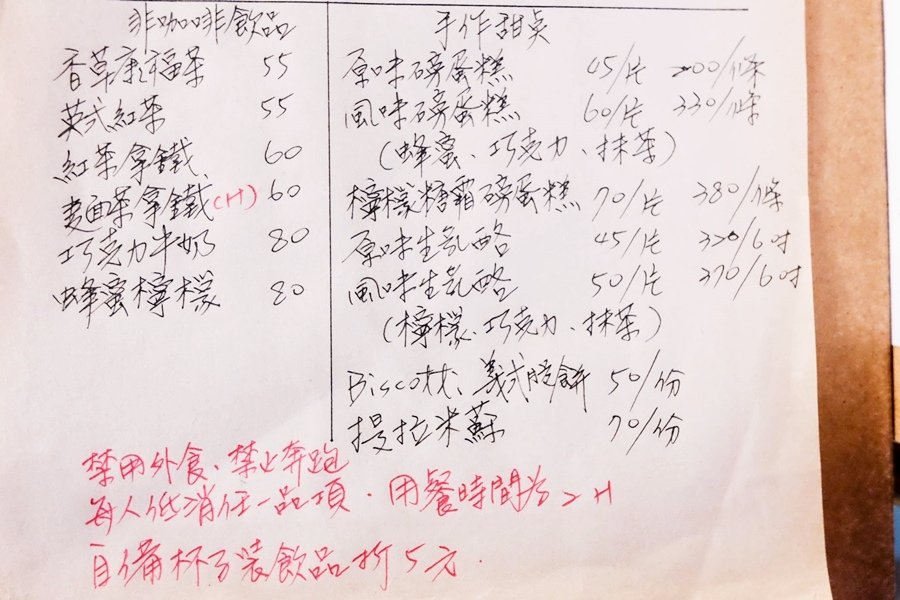 非咖啡飲品
香草康福茶 55
英式紅茶 55
紅茶拿鐵 60
麵茶拿鐵(H) 60
巧克力牛奶 80
蜂蜜檸檬 80
手作甜點
原味磅蛋糕 45/片 200/條
風味磅蛋糕 60/片 330/條
(蜂蜜、巧克力、抹茶)
檸檬糖霜磅蛋糕 70/片 380/條
原味生乳酪 45/片 320/6吋
風味生乳酪 50/片 370/6吋
(檸檬、巧克力、抹茶)
Biscotti、義式脆餅 50/份
提拉米蘇 70/份
禁用外食、禁止奔跑
每人低消任一品項.用餐時間為2H
自備杯子裝飲品折5元.